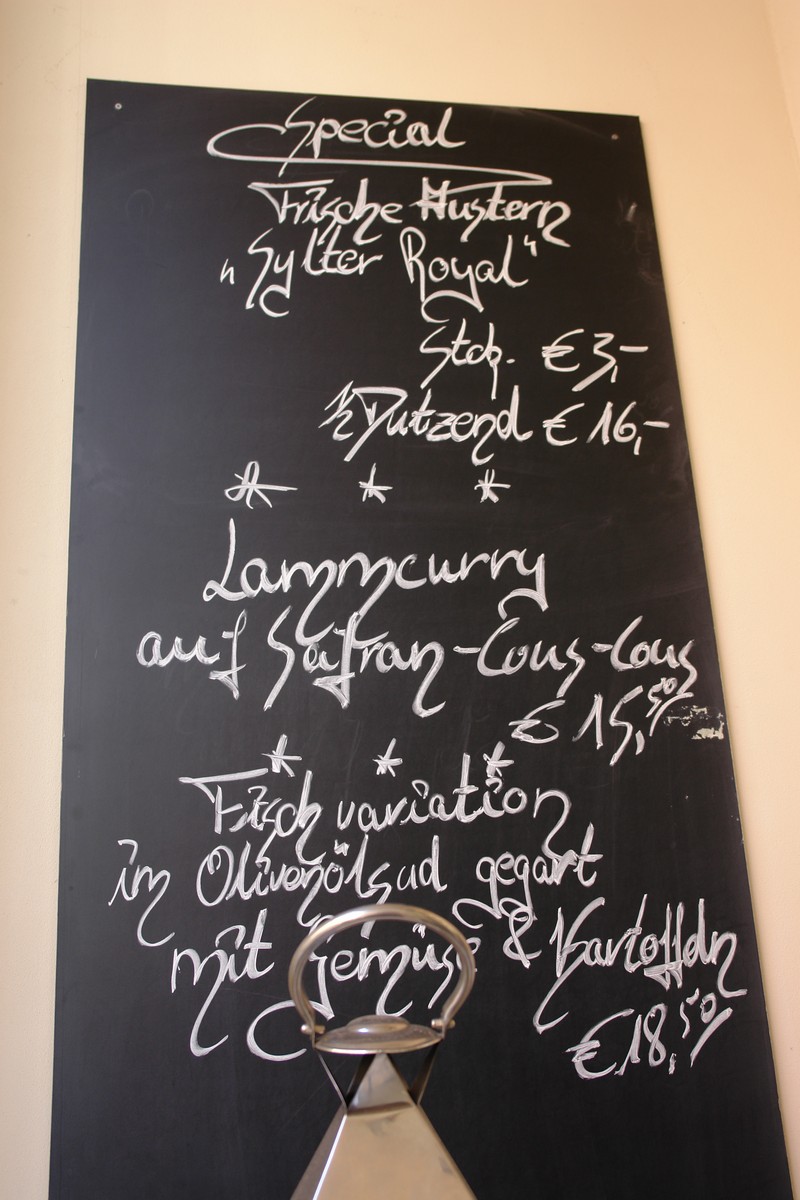 Special
Frische Austern
"Sylter Royal"
Stck. € 3,-
½ Dutzend € 16,-
* * *
Lammcurry
auf Safran-Cous-Cous
€ 15,50
* * *
Fischvariation
im Olivenölsud gegart
mit Gemüse & Kartoffeln
€ 18,50